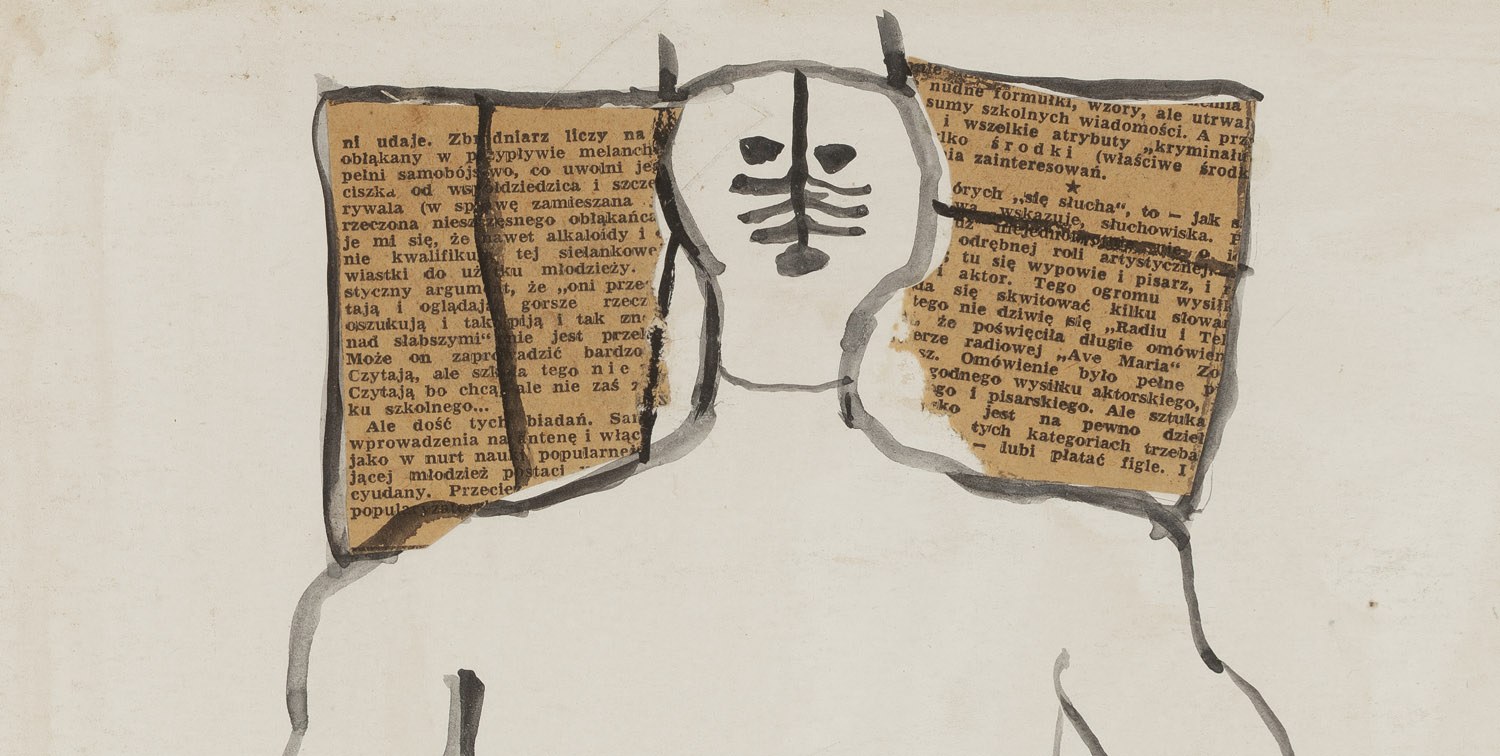 ni udaje. Zbrodniarz liczy na
obłąkany w przypływie melanch
pełni samobójstwo, co uwolni jeg
ciszka od współdziedzica i szczę
rywala (w sprawę zamieszana
rzeczona nieszczęsnego obłąkańca
je mi się, że nawet alkaloidy i
nie kwalifikują tej sielankowe
wiastki do użytku młodzieży.
styczny argument, że „oni prze
tają i oglądają gorsze rzecz
oszukują i tak piją i tak zn
nad słabszymi“ nie jest przek
Może on zaprowadzić bardzo
Czytają, ale szkoła tego nie
Czytają bo chcą, ale nie zaś z
ku szkolnego...
Ale dość tych biadań. Sam
wprowadzenia na antenę i włąc
jako w nurt nauki popularnej
jącej młodzież postaci
cyudany. Przecie
popularyzator
nie
nudne formułki, wzory, ale utrwal
sumy szkolnych wiadomości. A prz
i wszelkie atrybuty „kryminału
lko środki (właściwe środk
ia zainteresowań.
★
órych „się słucha“, to — jak s
wa wskazuje, słuchowiska. P
dź niejednokrotnie o
odrębnej roli artystycznej.
tu się wypowie i pisarz, i r
i aktor. Tego ogromu wysiłk
da się skwitować kilku słowam
tego nie dziwię się „Radiu i Tel
że poświęciła długie omówien
erze radiowej „Ave Maria“ Zo
sz. Omówienie było pełne p
godnego wysiłku aktorskiego,
go i pisarskiego. Ale sztuka
ko jest na pewno dziel
tych kategoriach trzeba
— lubi płatać figle. I